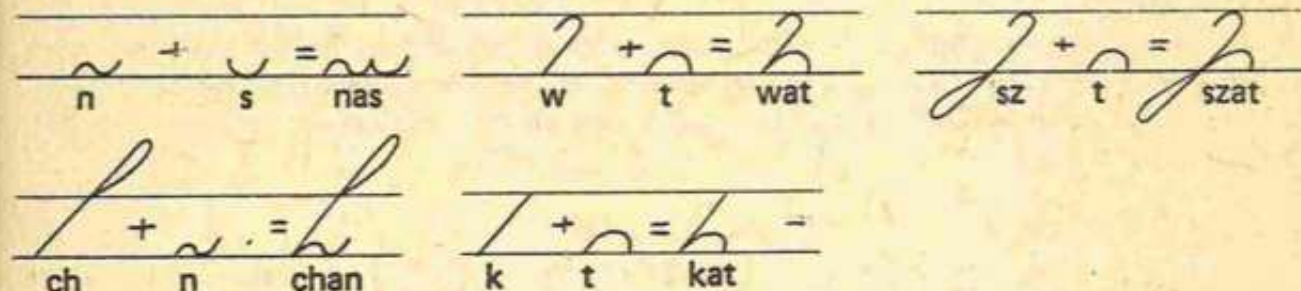 + = + = + =
n s nas w t wat sz t szat
+ = + = -
ch n chan k t kat